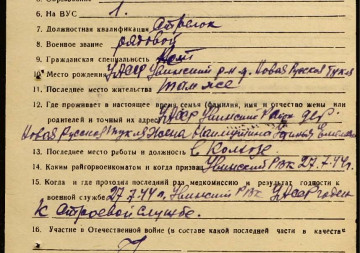 6. На ВУС 1.
7. Должностная квалификация Стрелок
8. Военное звание рядовой
9. Гражданская специальность
10. Место рождения УАССР Увинский р-н д. Новая Русская Тукля
11. Последнее место жительства там же
12. Где проживает в настоящее время семья (фамилия, имя и отчество жены или
родителей и точный их адрес) УАССР Увинский дер
Новая Русская Тукля Жена
13. Последнее место работы и должность в Колхозе
14. Каким райгорвоенкоматом и когда призван Увинский РВК 27.7.44г.
15. Когда и где проходил последний раз медкомиссию и результат годности к
военной службе 27.7.44г. Увинский РВК УАССР годен
к Строевой Службе.
16. Участие в Отечественной войне (в составе какой последней части и качестве